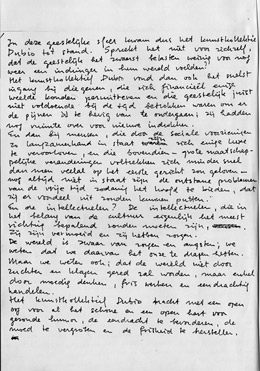 In deze geestelijke sfeer kwam dus het kunstkollektief
Dubio tot stand. Spreekt het niet voor zichzelf,
dat de geestelijk het zwaarst belasten weinig voor nog
weer een indringer in hun wereld voelden!
Het kunstkollektief Dubio vond dan ook het snelst
ingang bij die genen, die zich financieel enige
weelde konden permitteren en die geestelijk juist
niet voldoende bij de tijd betrokken waren om er
de pijnen te hevig van te ondergaan; zij hadden
nog ruimte over voor nieuwe indrukken.
En dan bij mensen, die door de sociale voorzieningen
in staat zich enige luxe
te veroorloven, en die bovendien grote maatschap-
pelijke veranderingen voltrekken zich minder snel
dan men veelal op het eerste gezicht zou geloven -
nog altijd niet in staat zijn de ontstane problemen
van de vrije tijd zodanig het hoofd te bieden, dat
zij er voordeel uit zouden kunnen putten.
En de intellectuelen? De intellectuelen, die in
het belang van de cultuur eigenlijk het meest
richting bepalend zouden moeten zijn,
Zij zijn vermoeid en zij zitten zorgen.
De wereld is zwaar van zorgen en angsten; we
weten dat we daarvan het onze te dragen hebben.
Maar we weten ook, dat de wereld niet door
zuchten en klagen gered zal worden, maar enkel
door moedig denken, fris werken en eendrachtig
handelen.
Het kunstkollektief Dubio tracht met een open
oog voor al het schone en een open hart voor
gezonde humor, de eendracht te bevorderen, de
moed te vergroten en de frisheid te herstellen.